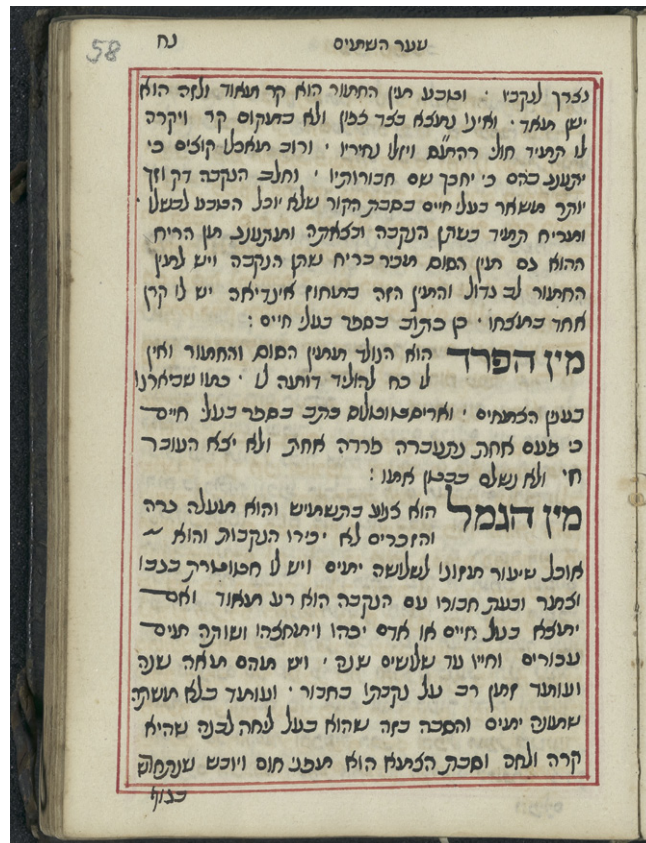 58 נח שער השמים
נצרך לנקביו · וטבע מין החמור הוא קר מאוד ולזה הוא
ישן מאד · ואינו נמצא בצד צפון ולא במקום קר ויקרה
לו תמיד חולי ויזלו נחיריו · ורוב מאכלו קוצים כי
יתענג בהם כי יחכך שם חבורותיו · וחלב הנקבה דק וזך
יותר משאר בעלי חיים בסבת הקור שלא יוכל הטבע לבשלו ·
ומריח תמיד בשתן הנקבה ובצאתה ומתענג מן הריח
ההוא גם מין הסוס מכר בריח שתן הנקבה ויש למין
החמור לב גדול והמין הזה במחוז אינדיאה יש לו קרן
אחד במצחו · כן כתוב בספר בעלי חיים :
מין הפרד הוא הנולד ממין הסוס והחמור ואין
לו כח להוליד דומה לו · כמו שביארנו
בענין הצמחים · ואריסטוטלוס כתב בספר בעלי חיים
כי פעם אחת נתעברה פרדה אחת ולא יצא העובר
חי ולא נשלם בבטן אמו :
מין הגמל הוא צנוע בתשמיש והוא מעלה גרה
והזכרים לא יכירו הנקבות והוא
אוכל שיעור מזונו לשלושה ימים ויש לו חטוטרת בגבו
וצמר ובעת חבורו עם הנקבה הוא רע מאוד ואם
ימצא בעל חיים או אדם יכהו וימחצהו ושותה מים
עכורים וחייו עד שלושים שנה · ויש מהם מאה שנה
ועומד זמן רב על נקבתו בחבור · ועומד בלא משתה
שמונה ימים והסבה בזה שהוא בעל ליחה לבנה שהיא
קרה ולחה וסבת הצמא הוא מפני חום ויובש
בגוף